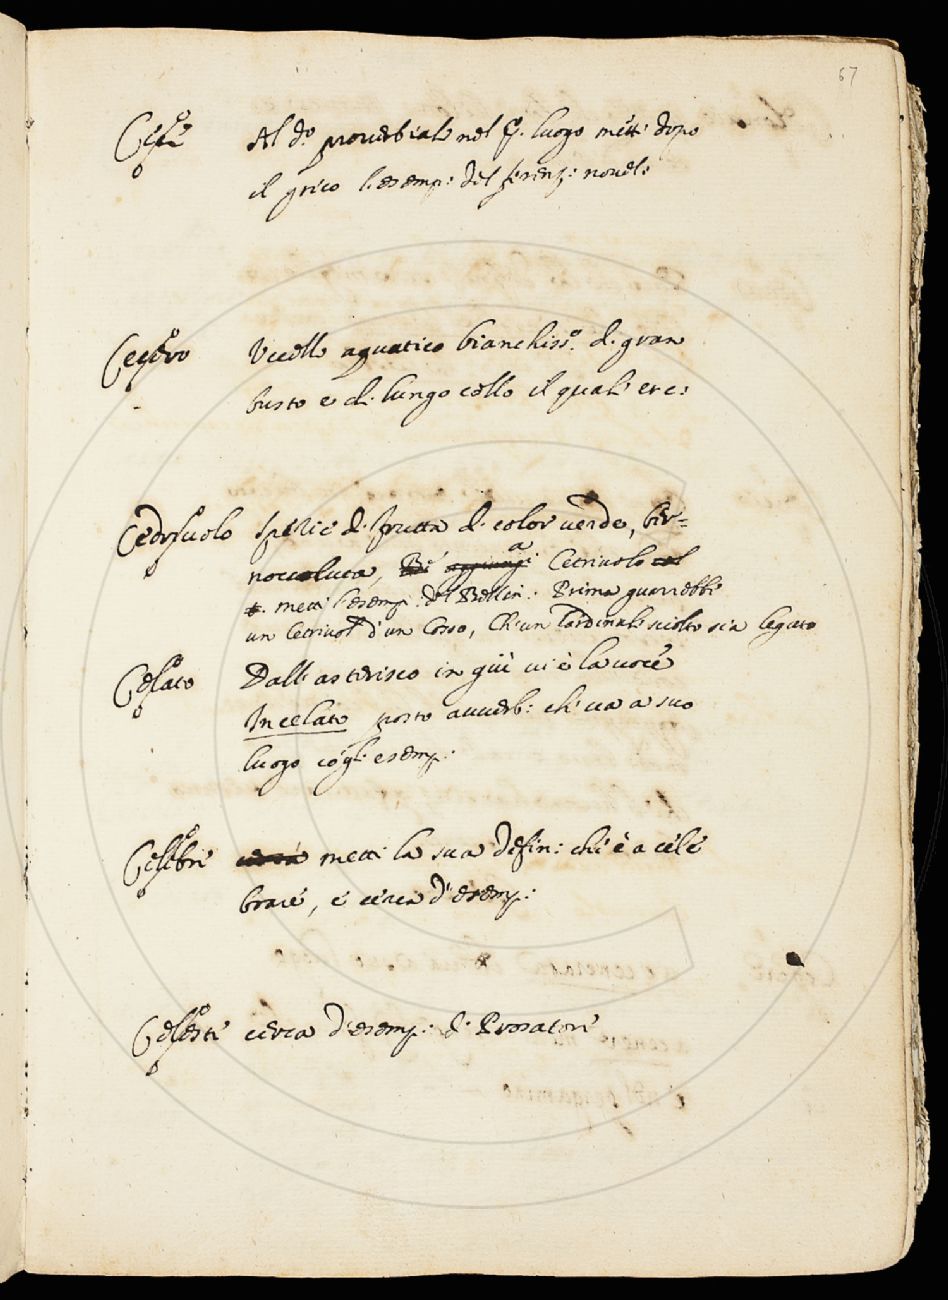 67
Cece Al d.o proverbiale nel p.o luogo mett: dopo
il greco l'esemp: del Firenz: novel:
Cecero Uccello aquatico bianchiss.o di gran
busto e di lungo collo il quale etc:
Cedriuolo Spezie di frutta di color verde, ber=
noccoluta, a Cetriuolo
metti l'esemp: del Bellin: Prima guarrebbe
un Cetriuol d'un Corso, Ch'un Cardinale sciolto sia legato
Celato Dall'asterisco in giù vi è la voce
In celato posto avverb: che va a suo
luogo cogli esemp:
Celebre metti la sua defin: che è a cele
brare, e cerca d'esemp:
Celeste cerca d'esemp: di Prosatori